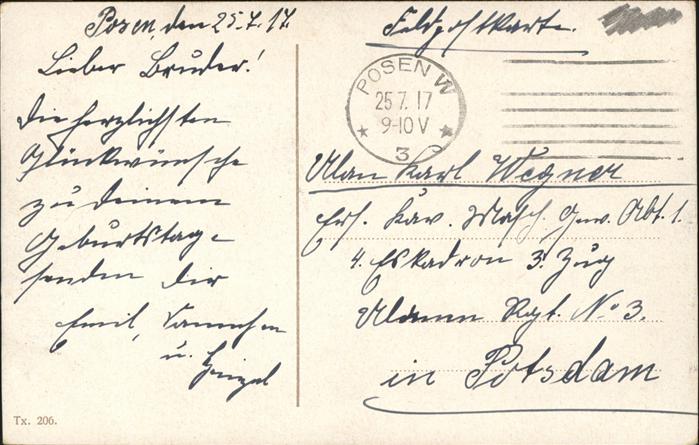 Posen, den 25.7.17.
Lieber Bruder!
Die herzlichsten
Glückwünsche
zu Deinem
Geburtstage
senden Dir
Emil,
u.
Tx. 206.
Feldpostkarte.
POSEN W
25 7. 17
9-10 V
3
Ulan Karl Wegner
Ers. Kav. Masch. Gew. Abt. 1.
4. Eskadron 3. Zug
Ulanen Rgt. No 3.
in Potsdam